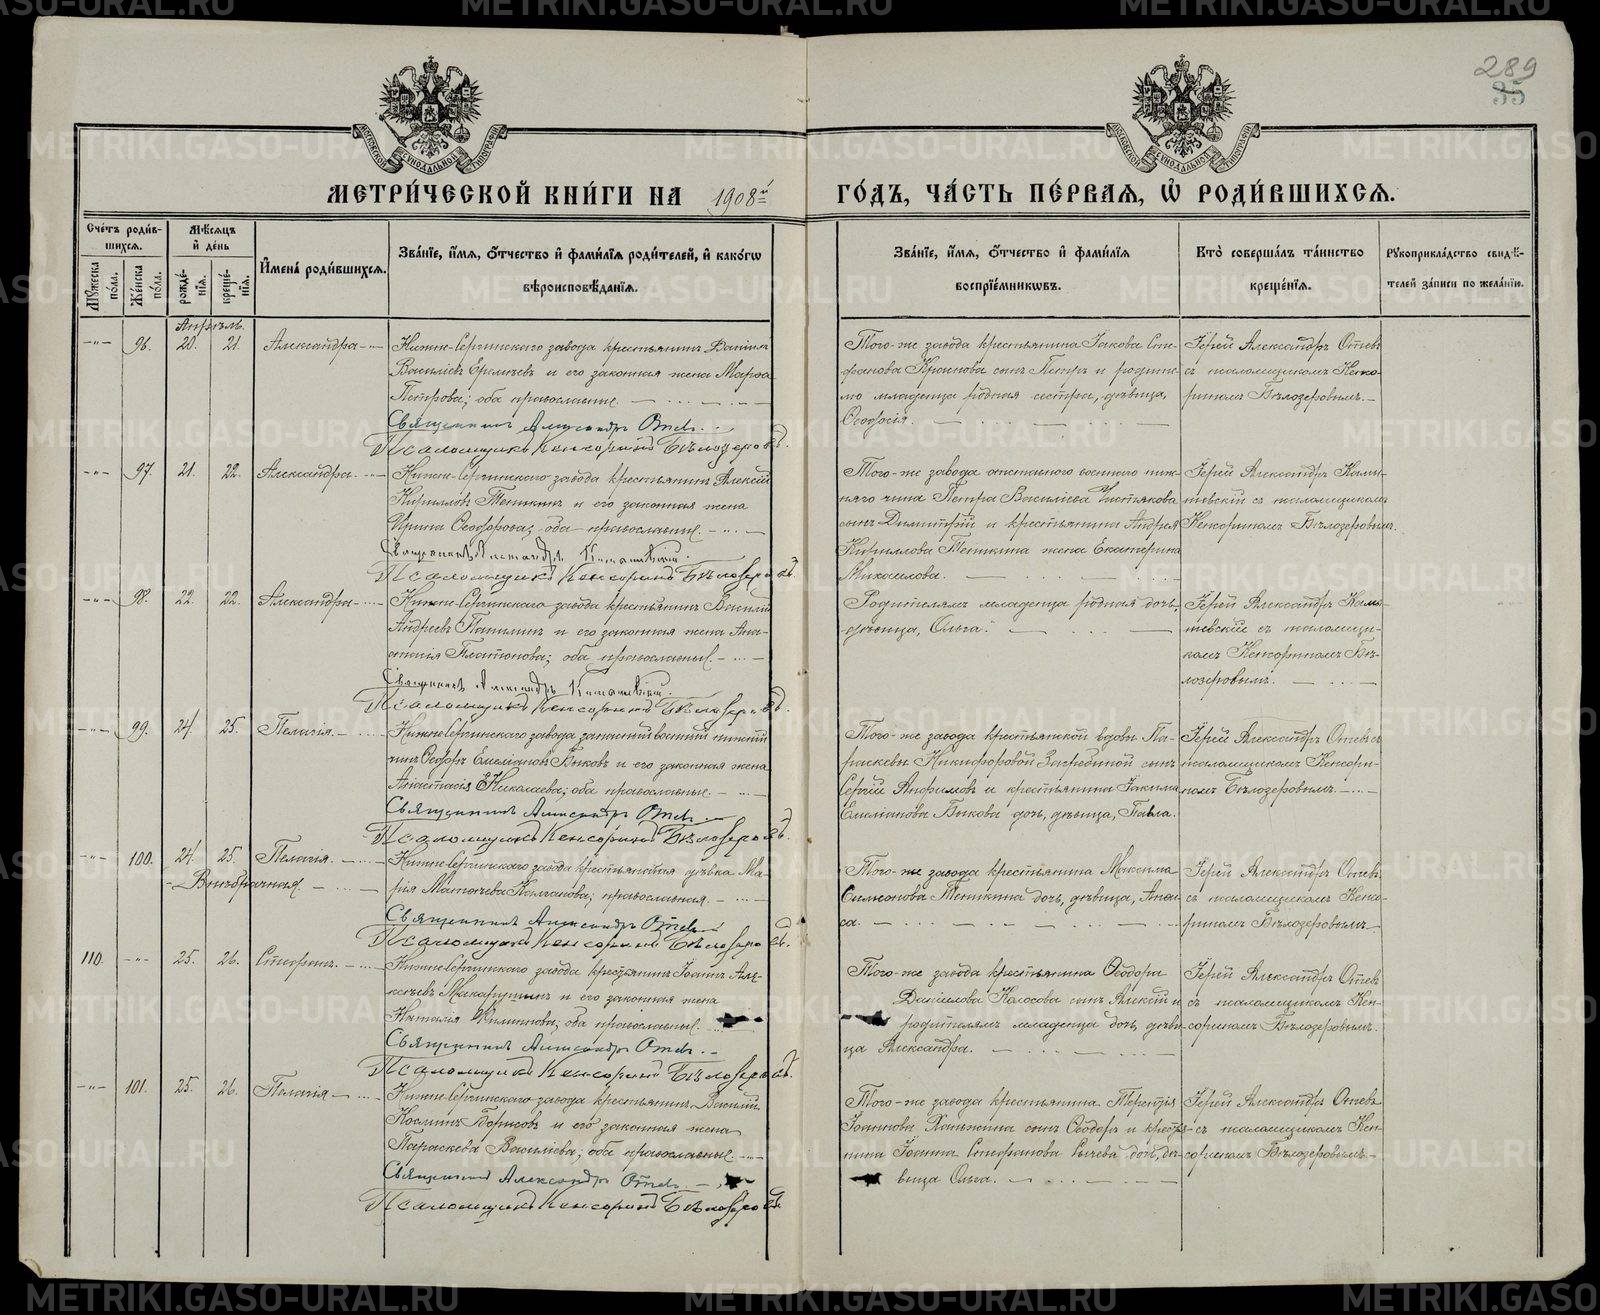 289
35
МЕТРИ́ЧЕСКОЙ КНИ́ГИ НА 1908й
ГО́ДЪ, ЧА́СТЬ ПЕ́РВАЯ, Ѡ РОДИ́ВШИХСЯ.
Сче́тъ роди́вшихся.
Му́жеска по́ла.
Же́нска по́ла.
Мѣ́сяцъ и де́нь
рожде́нїя.
креще́нїя.
Имена́ роди́вшихся.
Зва́нїе, и́мя, о́тчество и фами́лїя роди́телей, и како́гѡ
вѣроисповѣ́данїя.
Зва́нїе, и́мя, о́тчество и фами́лїя
воспрїе́мникѡвъ.
Кто̀ соверша́лъ та́инство
креще́нїя.
Рꙋкоприкла́дство свидѣ́-
телей за́писи по жела́нїю.
Апрѣль.
96. 20. 21. Александра
Нижне-Сергинскаго завода крестьянинъ
Василіевъ и его законная жена Марѳа
Петрова; оба православные.
Священникъ Александръ Отевъ.
Псаломщикъ Кенсоринъ Бѣлозеровъ.
Того-же завода крестьянина Іакова Сте-
фанова сынъ Петръ и родите-
лю младенца родная сестра, дѣвица,
Ѳеодосія.
Іерей Александръ Отевъ
съ псаломщикомъ Кенсо-
риномъ Бѣлозеровымъ.
97. 21. 22. Александра.
Нижне-Сергинскаго завода крестьянинъ Алексій
Кирилловъ Тетикинъ и его законная жена
Ирина Ѳеодорова; оба православные.
Священникъ Александръ
Псаломщикъ Кенсоринъ Бѣлозеровъ.
Того-же завода отставного военнаго ниж-
няго чина Петра Василіева Чистякова
сынъ Димитрій и крестьянина Андрея
Кириллова Тетикина жена Екатерина
Михаилова.
Іерей Александръ
съ псаломщикомъ
Кенсориномъ Бѣлозеровымъ.
98. 22. 22. Александра
Нижне-Сергинскаго завода крестьянинъ Василій
Андреевъ и его законная жена Ана-
стасія Платонова; оба православные.
Священникъ Александръ
Псаломщикъ Кенсоринъ Бѣлозеровъ.
Родителямъ младенца родная дочь,
дѣвица, Ольга.
Іерей Александръ
съ псаломщи-
комъ Кенсориномъ Бѣ-
лозеровымъ.
99. 24. 25. Пелагія.
Нижне-Сергинскаго завода запасный военный нижній
чинъ Ѳеодоръ Емеліановъ Быковъ и его законная жена
Анастасія Николаева; оба православные.
Священникъ Александръ Отевъ.
Псаломщикъ Кенсоринъ Бѣлозеровъ.
Того-же завода крестьянской вдовы Па-
раскевы Никифоровой сынъ
Сергій Анфимовъ и крестьянина Іакима
Емеліанова Быкова дочь, дѣвица, Павла.
Іерей Александръ Отевъ съ
псаломщикомъ Кенсори-
номъ Бѣлозеровымъ.
100. 24. 25. Пелагія.
Внѣбрачная.
Нижне-Сергинскаго завода крестьянская дѣвка Ма-
рія Матѳеева; православная.
Священникъ Александръ Отевъ.
Псаломщикъ Кенсоринъ Бѣлозеровъ.
Того-же завода крестьянина Максима
Симеонова Тетикина дочь, дѣвица, Анти-
са.
Іерей Александръ Отевъ
съ псаломщикомъ Кенсо-
риномъ Бѣлозеровымъ.
110. 25. 26. Стефанъ.
Нижне-Сергинскаго завода крестьянинъ Іоаннъ Але-
ксѣевъ Макарушинъ и его законная жена
Наталія Филиппова; оба православные.
Священникъ Александръ Отевъ.
Псаломщикъ Кенсоринъ Бѣлозеровъ.
Того-же завода крестьянина Ѳеодора
Даніилова Колосова сынъ Алексій и
родителямъ младенца дочь, дѣви-
ца Александра.
Іерей Александръ Отевъ
съ псаломщикомъ Кен-
сориномъ Бѣлозеровымъ.
101. 25. 26. Пелагія
Нижне-Сергинскаго завода крестьянинъ Василій
Косминъ Борисовъ и его законная жена
Параскева Василіева; оба православные.
Священникъ Александръ Отевъ.
Псаломщикъ Кенсоринъ Бѣлозеровъ.
Того-же завода крестьянина Терентія
Іоаннова сынъ Ѳеодоръ и кресть-
янина Іоанна Стефанова Сычева дочь, дѣ-
вица Ольга.
Іерей Александръ Отевъ
съ псаломщикомъ Кен-
сориномъ Бѣлозеровымъ.
METRIKI.GASO-URAL.RU